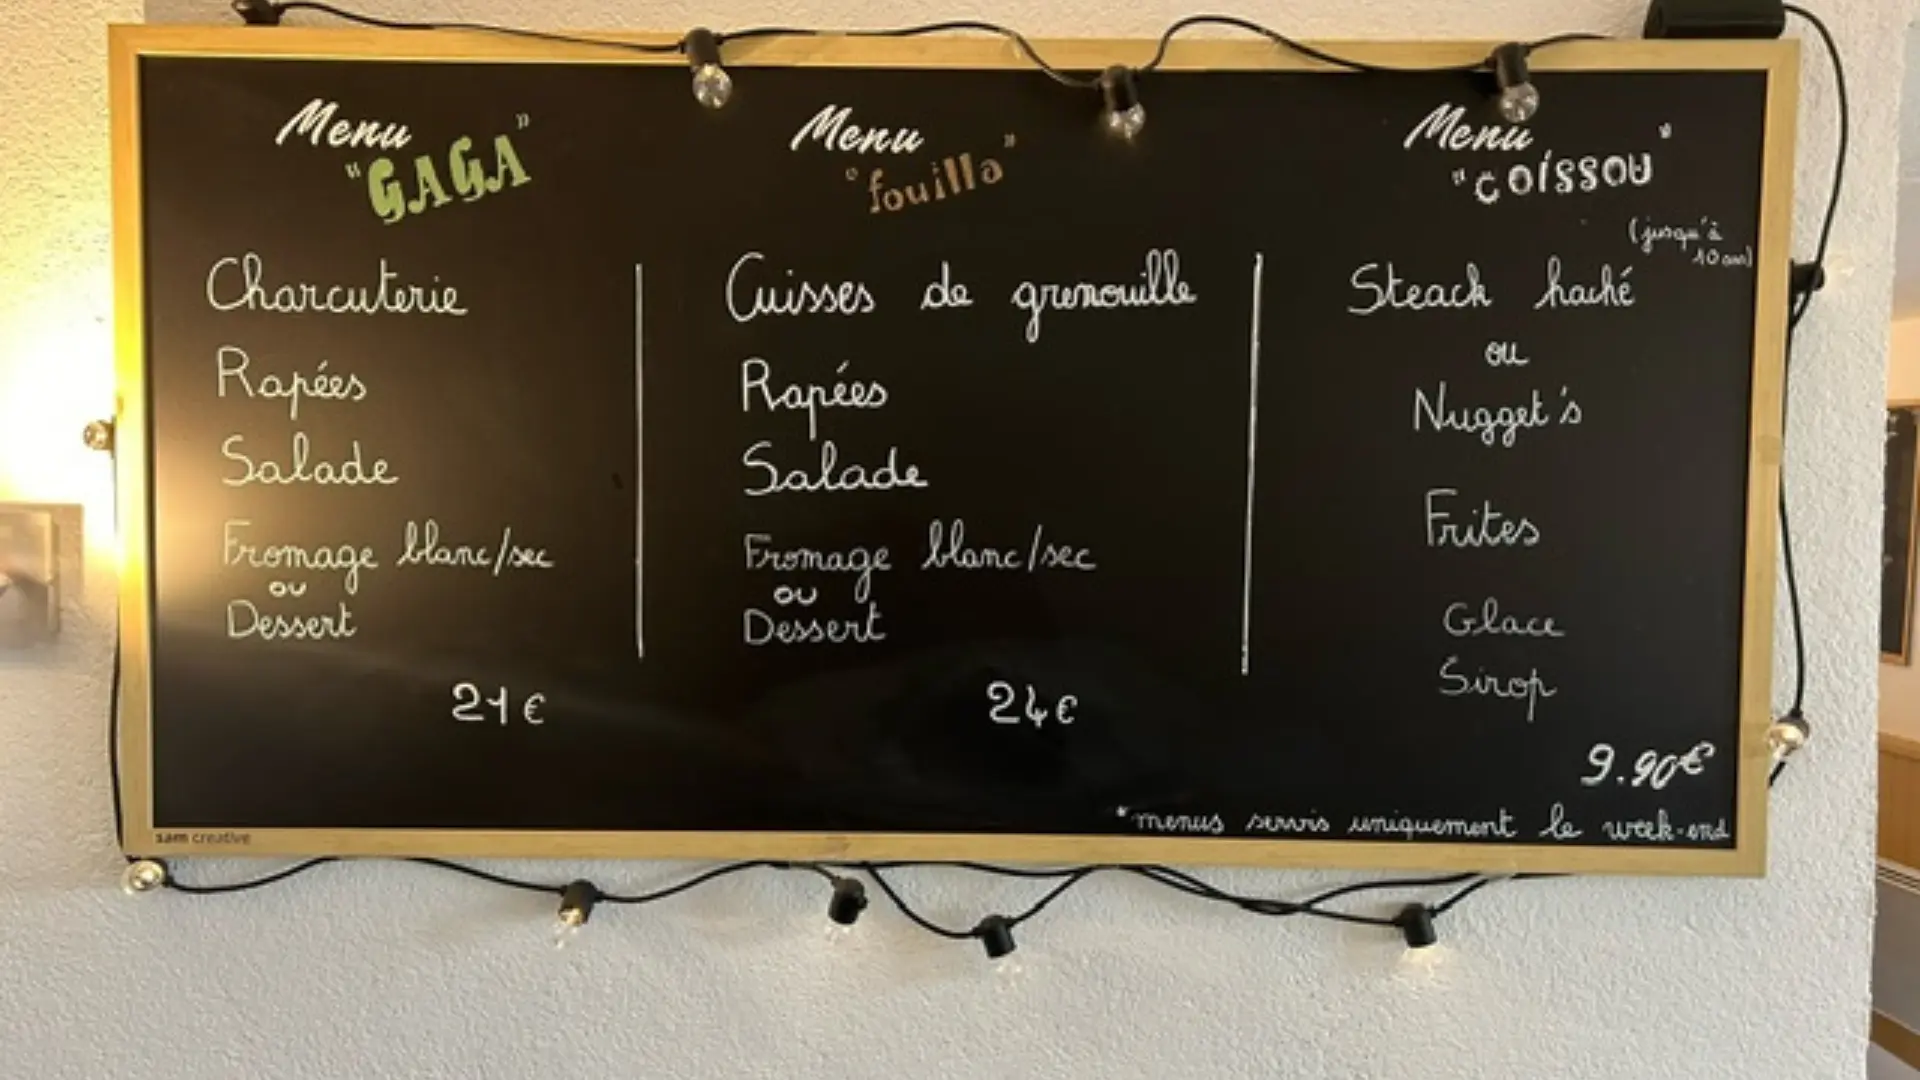 Menu
"GAGA"
Charcuterie
Rapées
Salade
Fromage blanc/sec
ou
Dessert
21€
Menu
"fouilla"
Cuisses de grenouille
Rapées
Salade
Fromage blanc/sec
ou
Dessert
24€
Menu
"COISSOU"
(jusqu'à
10 ans)
Steack haché
ou
Nugget's
Frites
Glace
Sirop
9.90€
*menus servis uniquement le week-end
sam creative